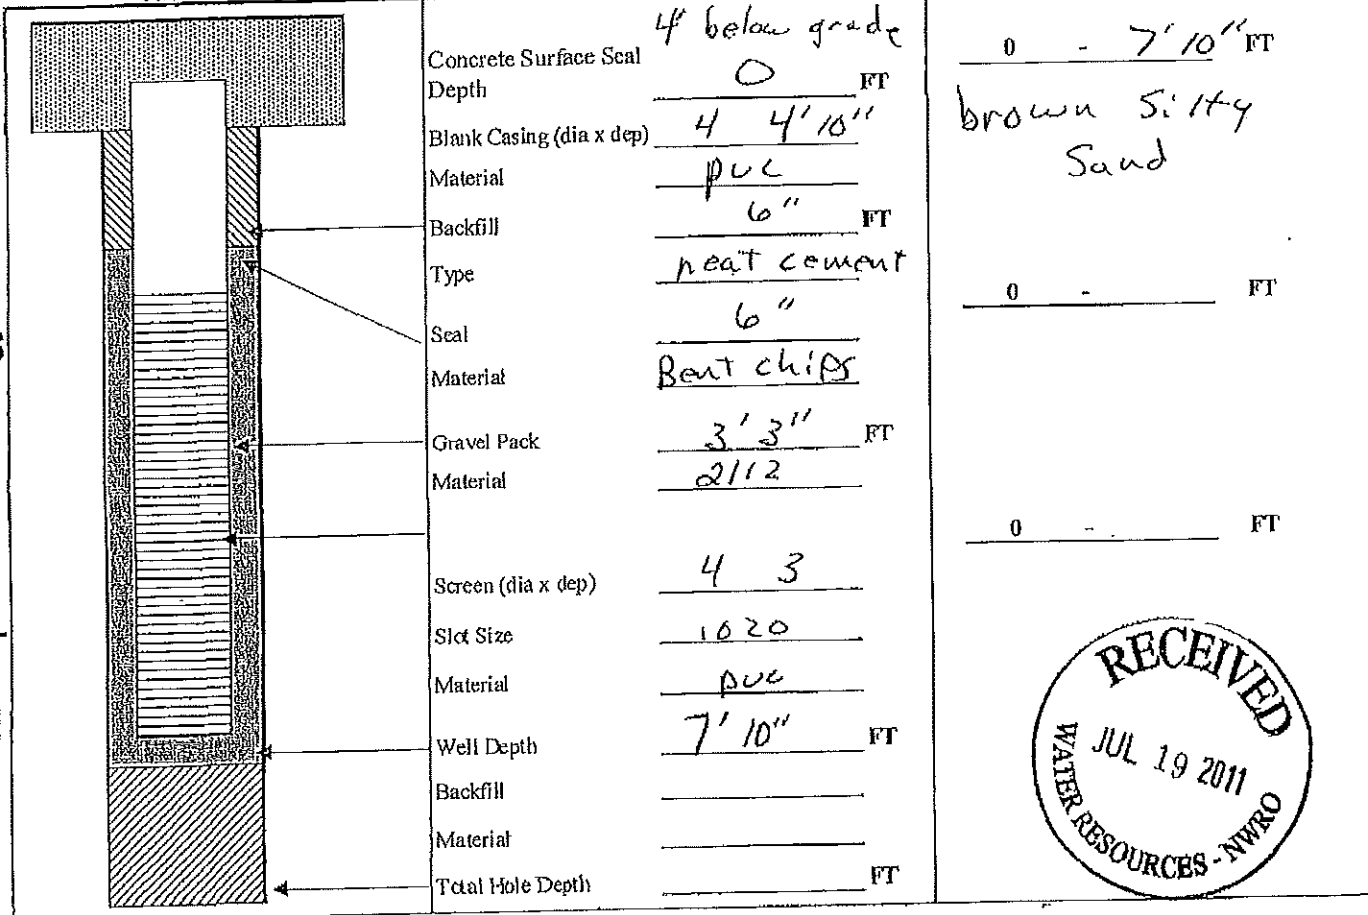 4' below grade
Concrete Surface Seal
Depth O FT
Blank Casing (dia x dep) 4 4'10"
Material pvc
Backfill 6" FT
Type neat cement
Seal 6"
Material Bent chips
Gravel Pack 3'3" FT
Material 2/12
Screen (dia x dep) 4 3
Slot Size 1020
Material pvc
Well Depth 7'10" FT
Backfill
Material
Total Hole Depth FT
0 - 7'10" FT
brown Silty
Sand
0 - FT
0 - FT
RECEIVED
JUL 19 2011
WATER RESOURCES - NWRO